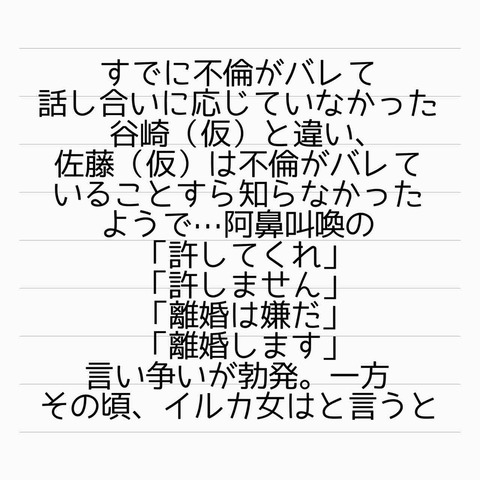 すでに不倫がバレて
話し合いに応じていなかった
谷崎（仮）と違い、
佐藤（仮）は不倫がバレて
いることすら知らなかった
ようで…阿鼻叫喚の
「許してくれ」
「許しません」
「離婚は嫌だ」
「離婚します」
言い争いが勃発。一方
その頃、イルカ女はと言うと